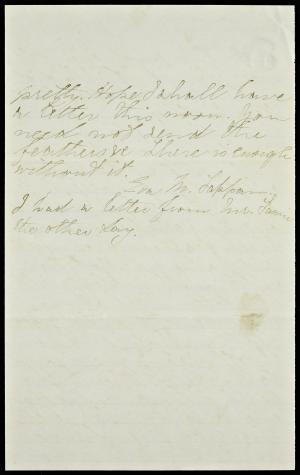 pretty. Hope I shall have
a letter this noon. You
need not send the
feathers & there is enough
without it.
M. Tappan.
I had a letter from Mr.
the other day.